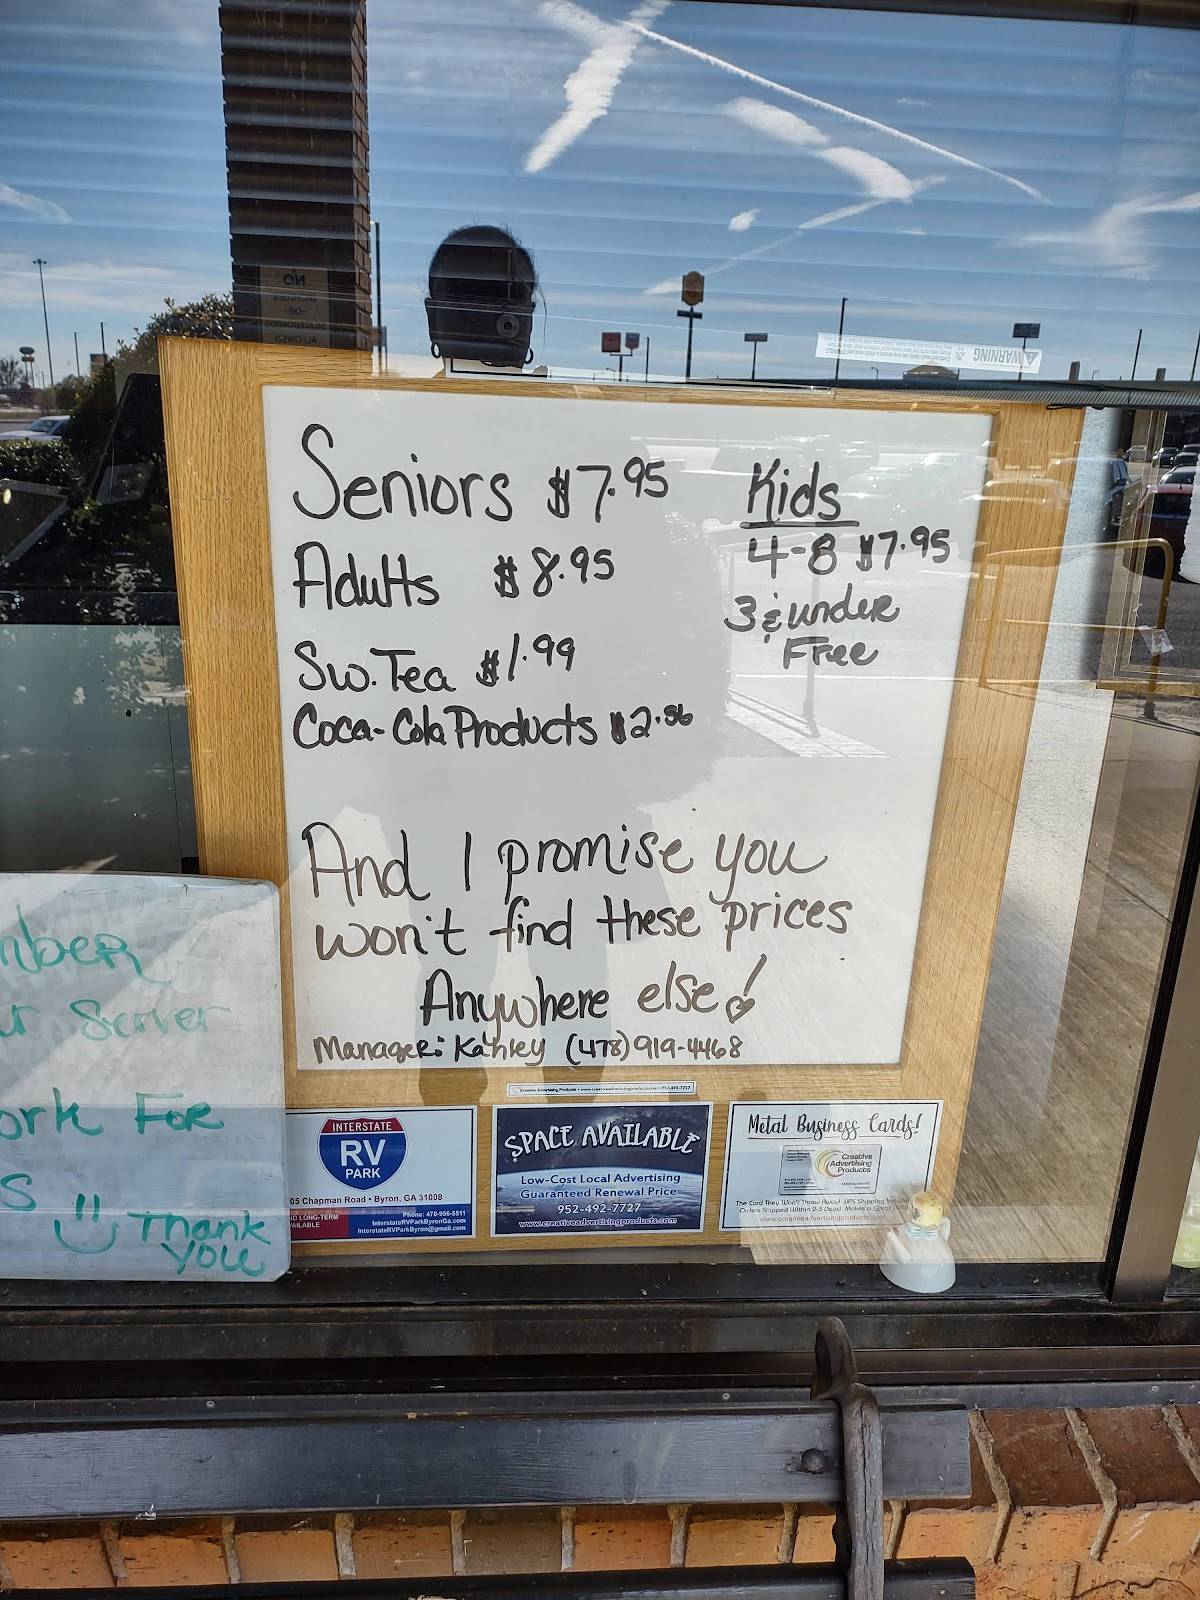 Seniors $7.95
Adults $8.95
Sw. Tea $1.99
Coca-Cola Products $2.56
Kids
4-8 $7.95
3 & under
Free
And I promise you
won't find these prices
Anywhere else!
Manager: (478) 919-4468
Creative Advertising Products • www.creativeadvertisingproducts.com • 952-492-7727
INTERSTATE
RV
PARK
05 Chapman Road • Byron, GA 31008
Phone: 478-956-5511
LONG-TERM
InterstateRVParkByronGa.com
InterstateRVParkByron@gmail.com
SPACE AVAILABLE
Low-Cost Local Advertising
Guaranteed Renewal Price
952-492-7727
www.creativeadvertisingproducts.com
Metal Business Cards!
Creative
Advertising
Products
The Card They Won't Throw Away! UPS Shipping
Orders Shipped Within 2-3 Days!
Server
For
Thank
you
WARNING
NO
BICYCLES
-OR-
SKATEBOARDS
ALLOWED